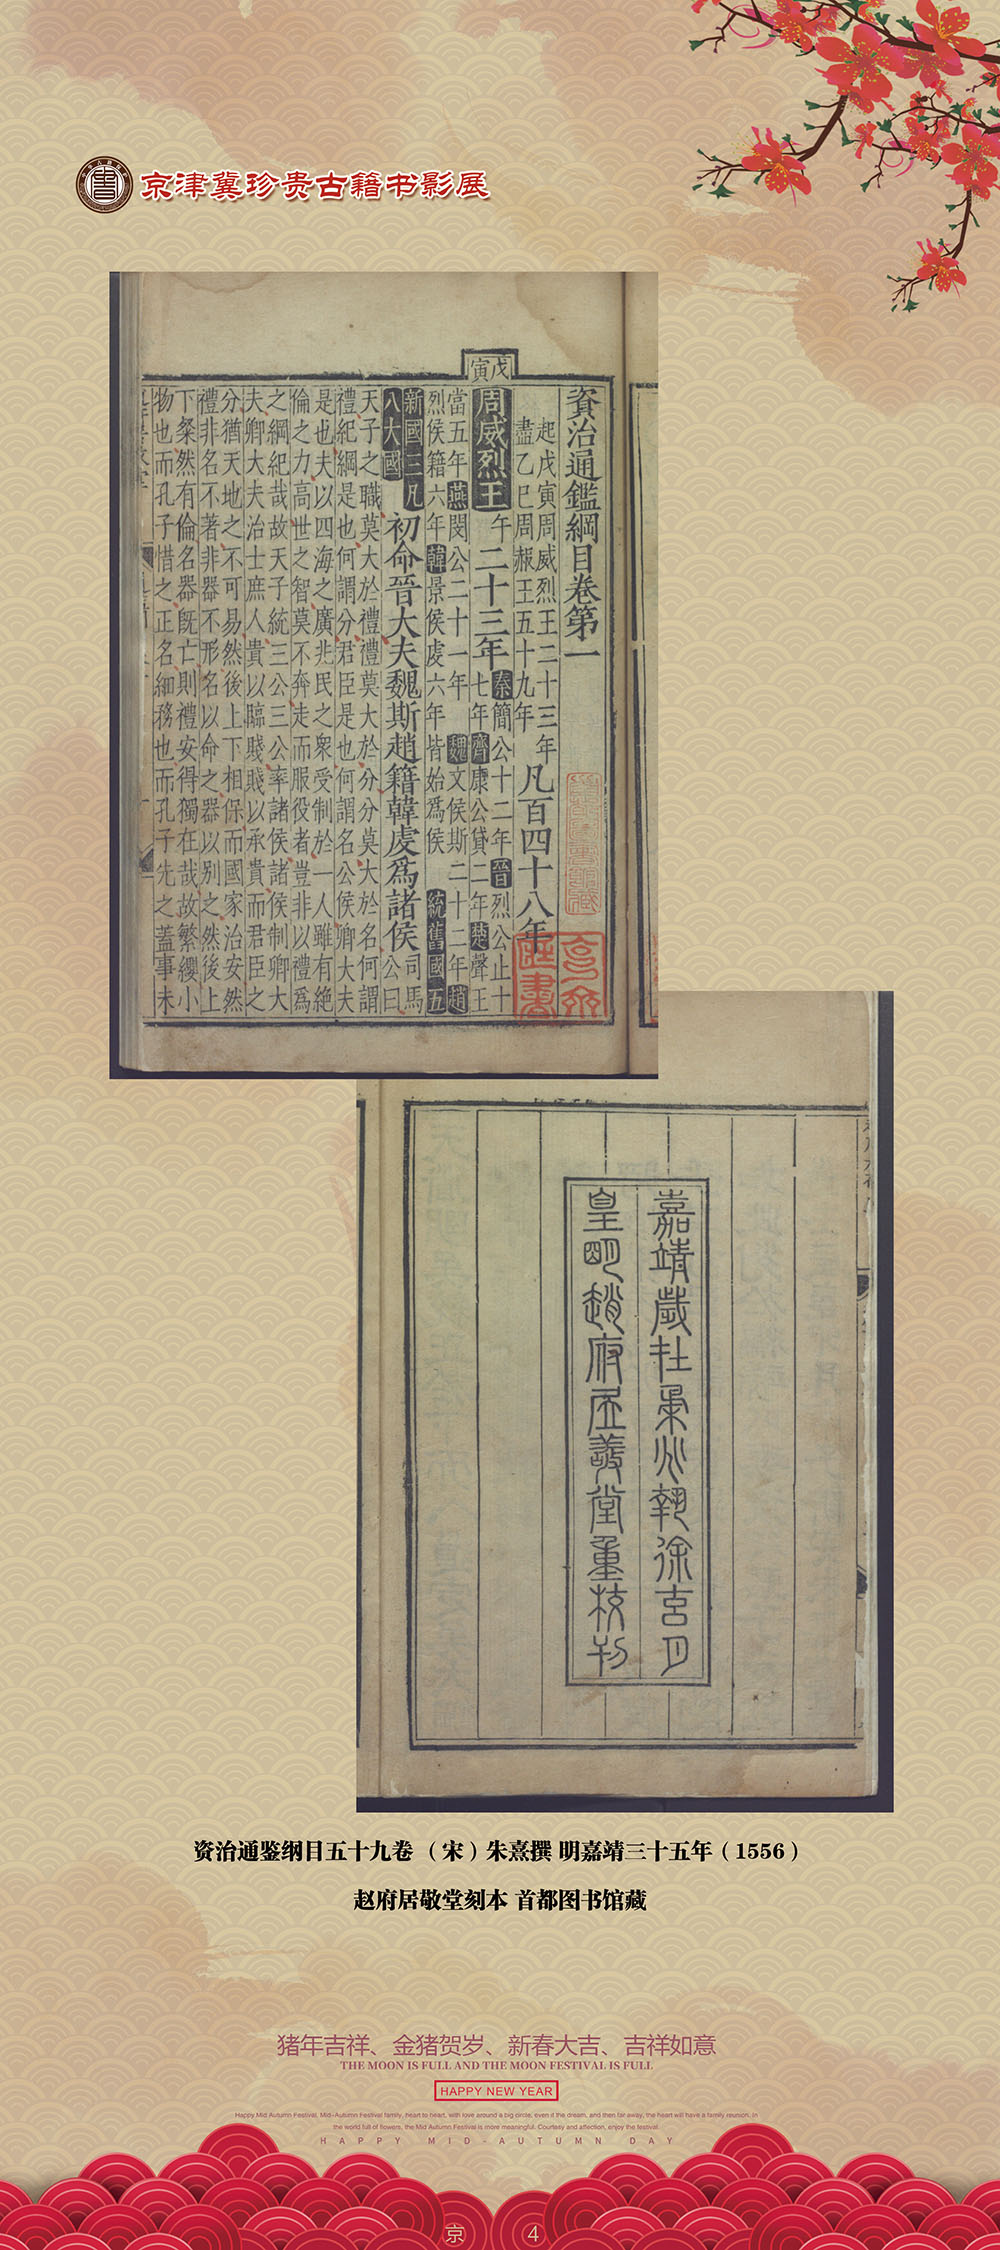 書
京津冀珍贵古籍书影展
戊寅
資治通鑑綱目卷第一
起戊寅周威烈王二十三年
盡乙巳周赧王五十九年
凡百四十八年
周威烈王
午
二十三年
秦簡公十二年晉烈公止十
七年齊康公貸二年楚聲王
當五年燕閔公二十一年 魏文侯斯二十二年趙
烈侯籍六年韓景侯虔六年皆始爲侯 統舊國五
新國三凡
八大國
初命晉大夫魏斯趙籍韓虔爲諸侯
司馬
公曰
天子之職莫大於禮禮莫大於分分莫大於名何謂
禮紀綱是也何謂分君臣是也何謂名公侯卿大夫
是也夫以四海之廣兆民之衆受制於一人雖有絶
倫之力高世之智莫不奔走而服役者豈非以禮爲
之綱紀哉故天子統三公三公率諸侯諸侯制卿大
夫卿大夫治士庶人貴以臨賤賤以承貴而君臣之
分猶天地之不可易然後上下相保而國家治安然
禮非名不著非器不形名以命之器以別之然後上
下粲然有倫名器旣亡則禮安得獨在哉故繁纓小
物也而孔子惜之正名細務也而孔子先之蓋事未
嘉靖歲在柔兆執徐玄月
皇明趙府居敬堂重校刊
资治通鉴纲目五十九卷（宋）朱熹撰 明嘉靖三十五年（1556）
赵府居敬堂刻本 首都图书馆藏
猪年吉祥、金猪贺岁、新春大吉、吉祥如意
THE MOON IS FULL AND THE MOON FESTIVAL IS FULL
HAPPY NEW YEAR
Happy Mid Autumn Festival, Mid-Autumn Festival family, heart to heart, with love around a big circle, even if the dream, and then far away, the heart will have a family reunion. In
the world full of flowers, the Mid Autumn Festival is more meaningful. Courtesy and affection, enjoy the festival.
HAPPY MID-AUTUMN DAY
京 4